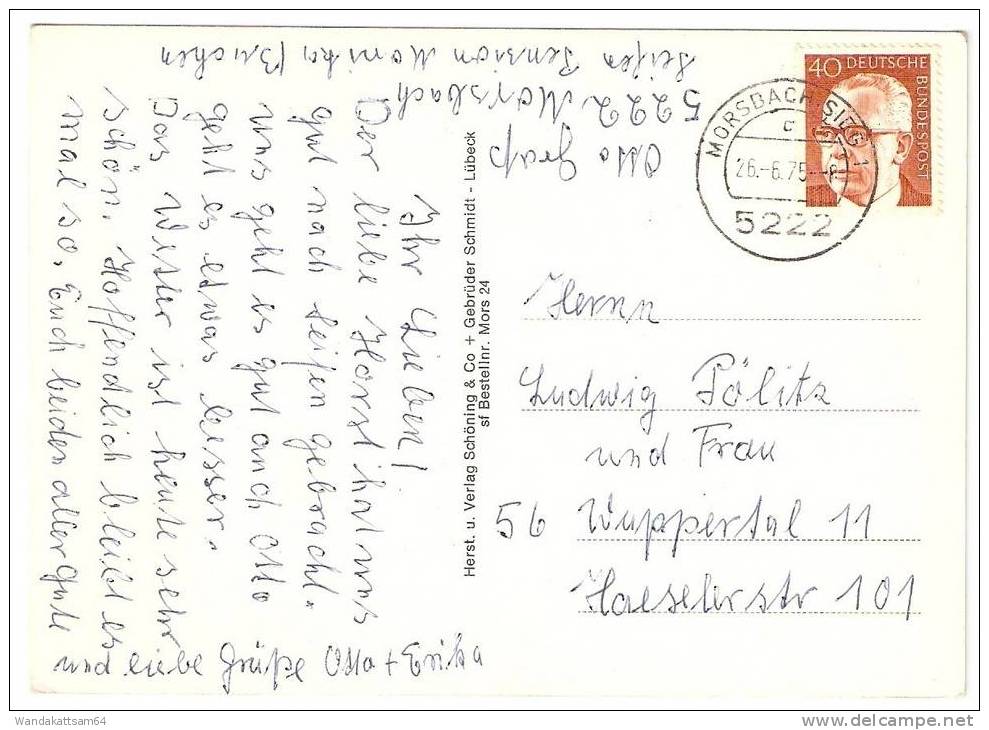 Otto Graß
5222 Morsbach
Seifen Pension Monika Buchen
Ihr Lieben!
Der liebe Horst hat uns
gut nach Seifen gebracht.
uns geht es gut auch Otto
geht es etwas besser.
Das Wetter ist heute sehr
schön. Hoffendlich bleibt es
mal so. Euch beiden aller gute
und liebe Grüße Otto + Erika
Herst. u. Verlag Schöning & Co + Gebrüder Schmidt - Lübeck
sf Bestellnr. Mors 24
40 DEUTSCHE
BUNDESPOST
MORSBACH, SIEG 1
c
26.-6.75--8
5222
Herrn
Ludwig Pölitz
und Frau
56 Wuppertal 11
Haeselerstr 101
Wandakattsam64
www.delcampe.net